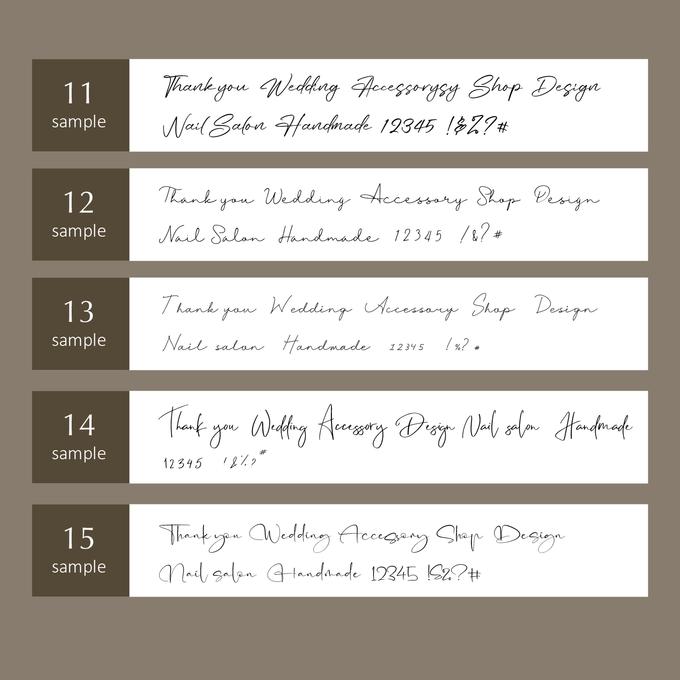 11
sample
Thankyou Wedding Accessorysy Shop Design
Nail Salon Handmade 12345 !&%?#
12
sample
Thank you Wedding Accessory Shop Design
Nail Salon Handmade 12345 !&?#
13
sample
Thank you Wedding Accessory Shop Design
Nail salon Handmade 12345 !%?#
14
sample
Thank you Wedding Accessory Design Nail salon Handmade
12345 !&%?#
15
sample
Thank you Wedding Accessory Shop Design
Nail salon Handmade 12345 !&?#